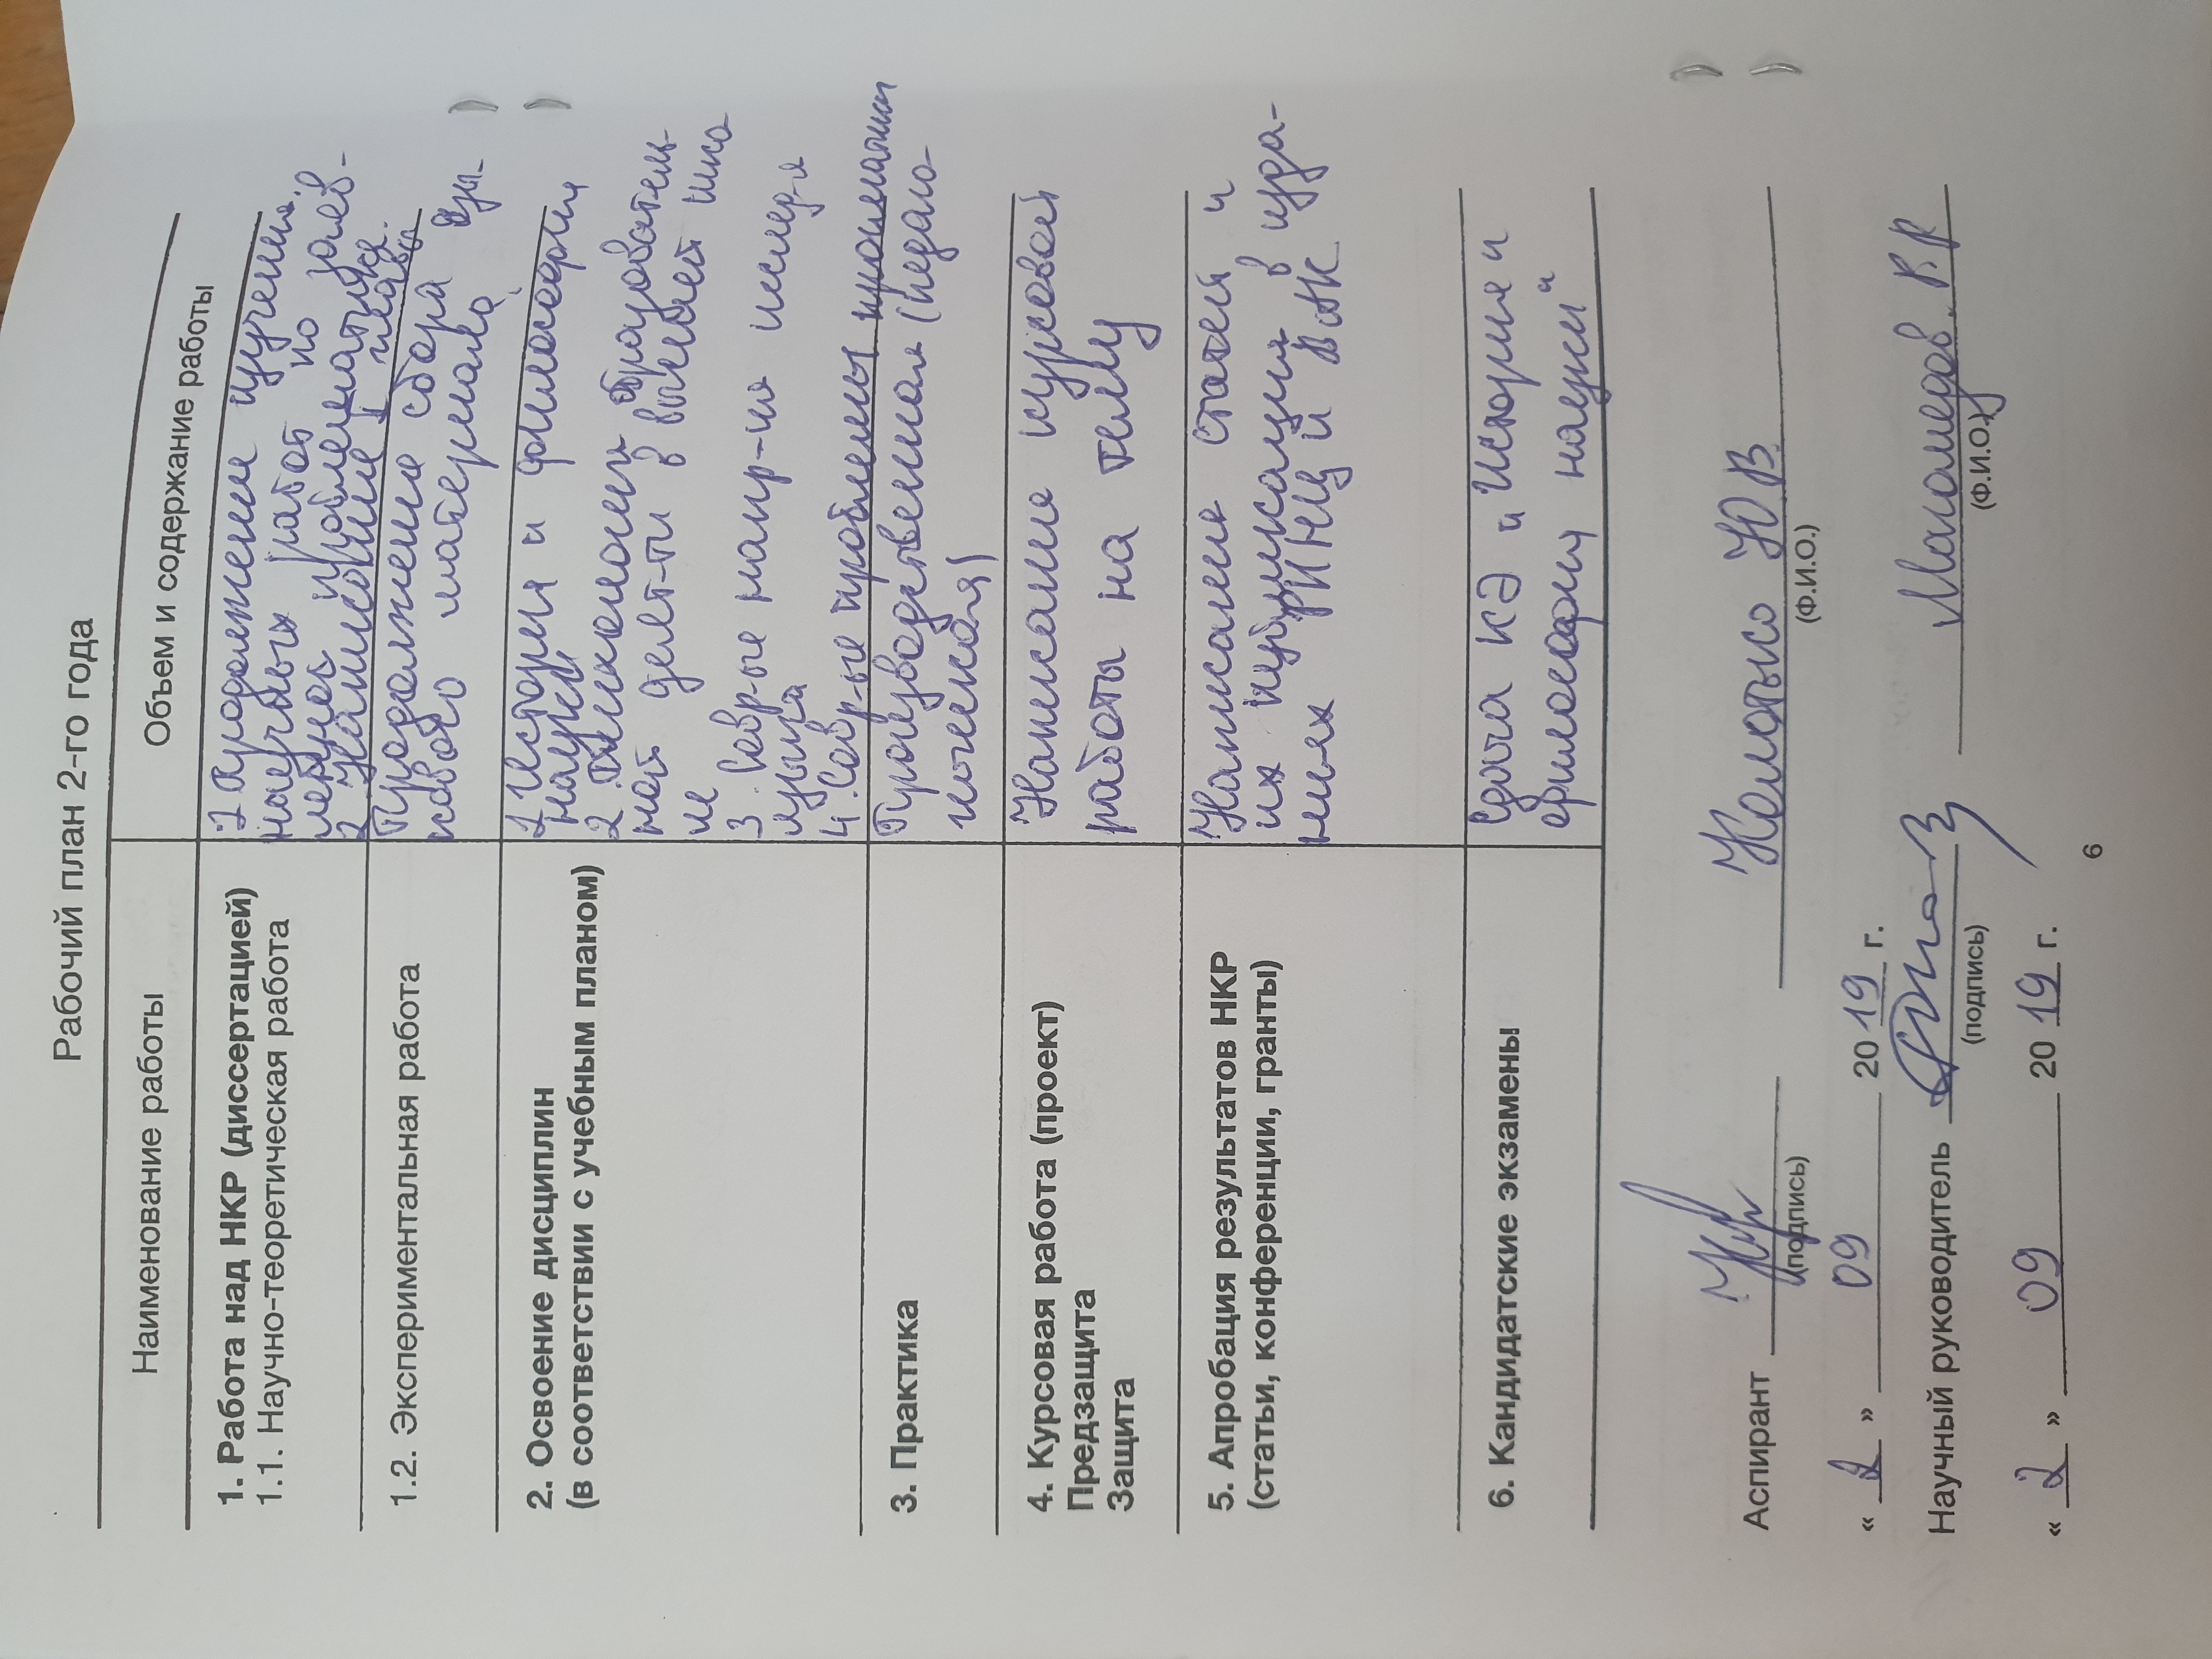 Рабочий план 2-го года
Наименование работы
Объем и содержание работы
1. Работа над НКР (диссертацией)
1.1. Научно-теоретическая работа
1 Продолжение изучения
научных работ по заяв-
ленной проблематике.
2 Написание 1 главы
1.2. Экспериментальная работа
Продолжение сбора язы-
кового материала
2. Освоение дисциплин
(в соответствии с учебным планом)
1 История и философия
науки
2 Технологии образователь-
ной деят-ти в высшей шко
ле
3. Совр-ые напр-ия исслед-я
языка
4. Совр-ые проблемы
3. Практика
Производственная (педаго-
гическая)
4. Курсовая работа (проект)
Предзащита
Защита
Написание курсовой
работы на тему
5. Апробация результатов НКР
(статьи, конференции, гранты)
Написание статей и
их публикация в изда-
ниях РИНЦ и ВАК
6. Кандидатские экзамены
Сдача КЭ "История и
философия науки"
Аспирант Ю В
(подпись) (Ф.И.О.)
« 2 » 09 20 19 г.
Научный руководитель
(подпись) (Ф.И.О.)
« 2 » 09 20 19 г.
6